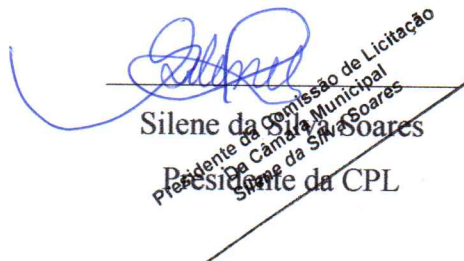 Silene da Silva Soares
Presidente da CPL
Presidente da Comissão de Licitação
Da Câmara Municipal
Silene da Silva Soares